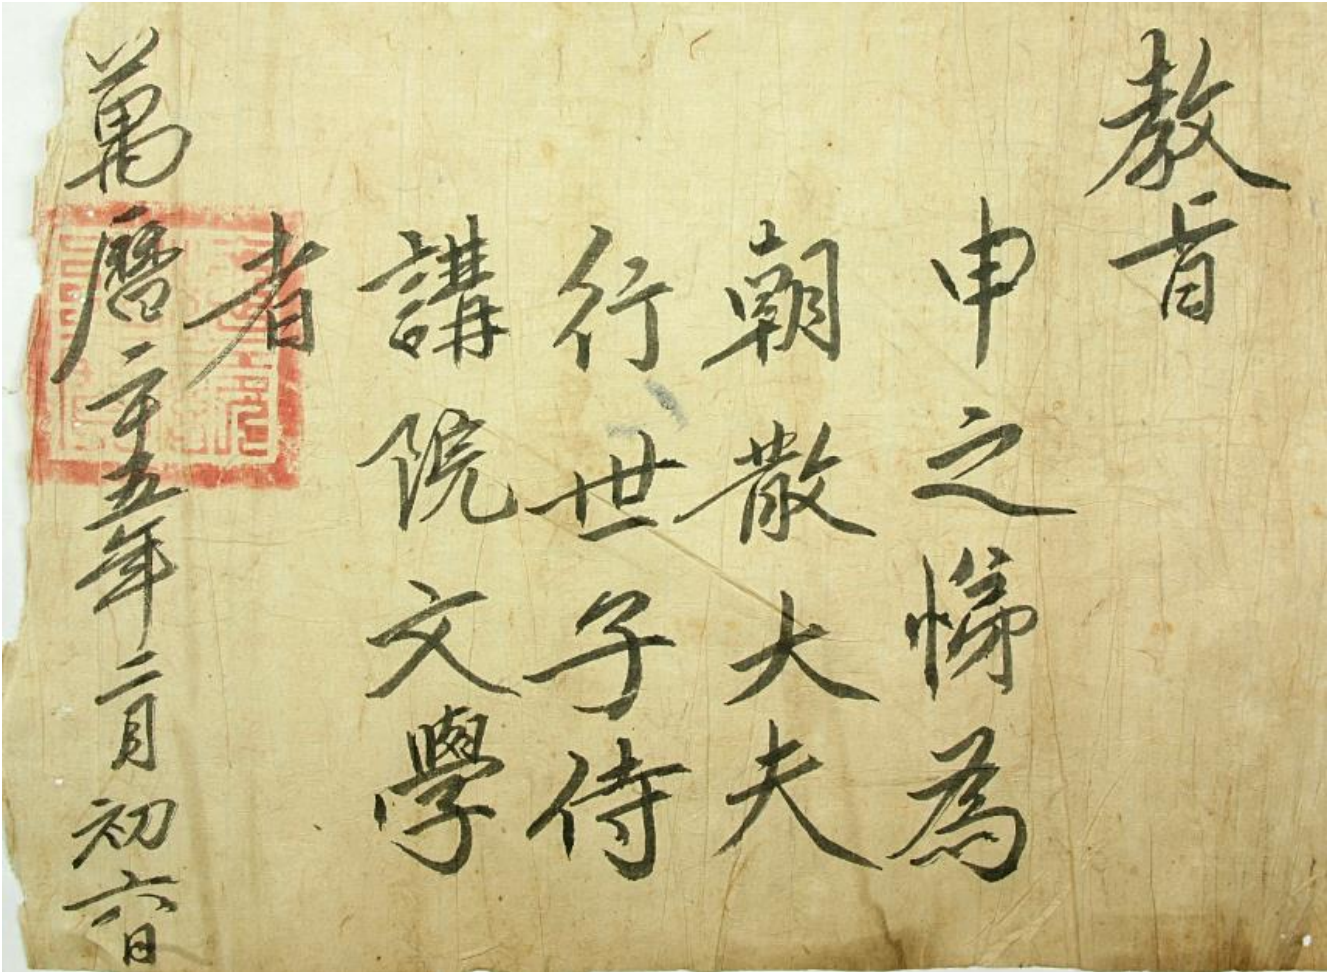 教旨
申之悌為
朝散大夫
行世子侍
講院文學
者
萬曆二十五年二月初六日